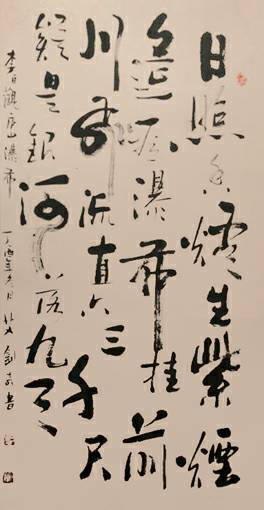 日照香爐生紫煙
遙看瀑布挂前
川飛流直下三千尺
疑是銀河落九天
李白觀廬山瀑布 丁酉年 月 書